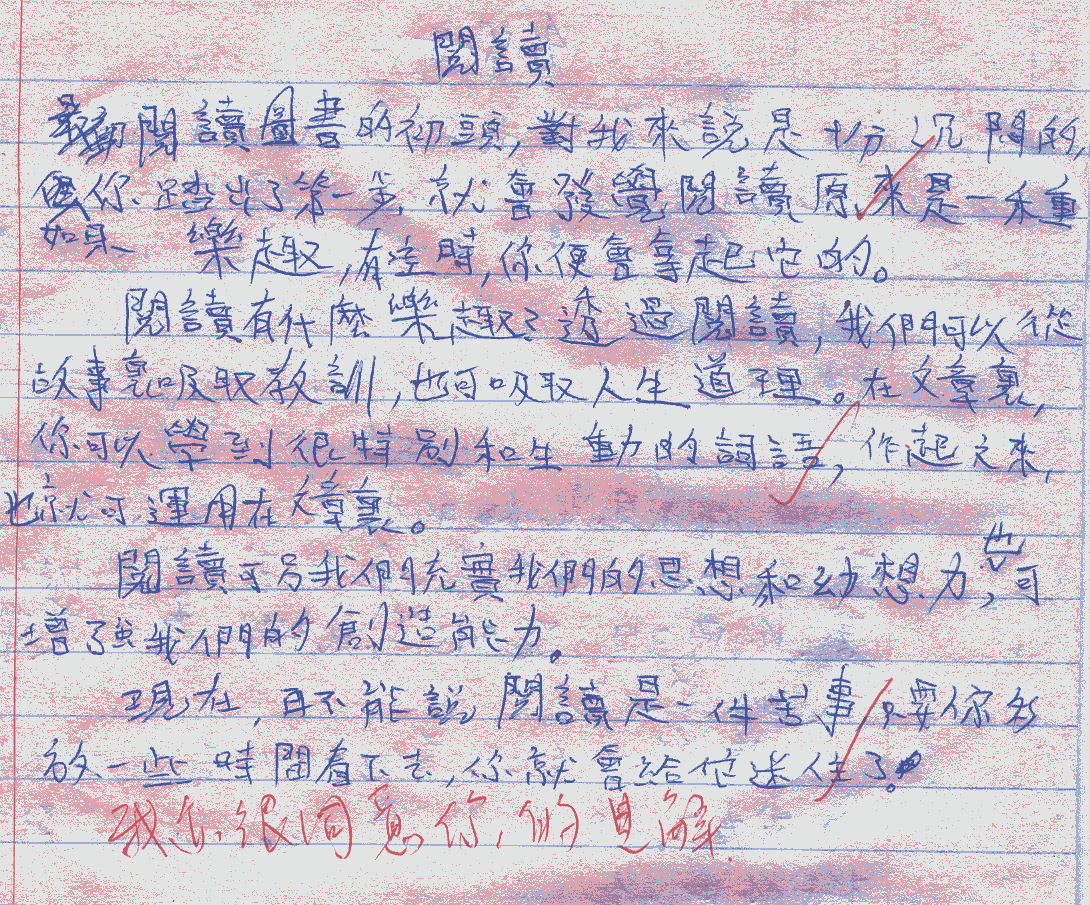 閱讀
最初閱讀圖書的初頭，對我來說是十分沉悶的，
但你踏出了第一步，就會發覺閱讀原來是一種
如見 樂趣，有空時，你便會拿起它的。
閱讀有什麼樂趣？透過閱讀，我們可以從
故事裏吸取教訓，也可吸取人生道理。在文章裏，
你可以學到很特別和生動的詞語，作起文來，
也就可運用在文章裏。
閱讀可另我們充實我們的思想和幼想力，也可
增强我們的創造能力。
現在，再不能說閱讀是一件苦事，只要你多
放一些時間看下去，你就會給它迷住了。
我也很同意你的見解。